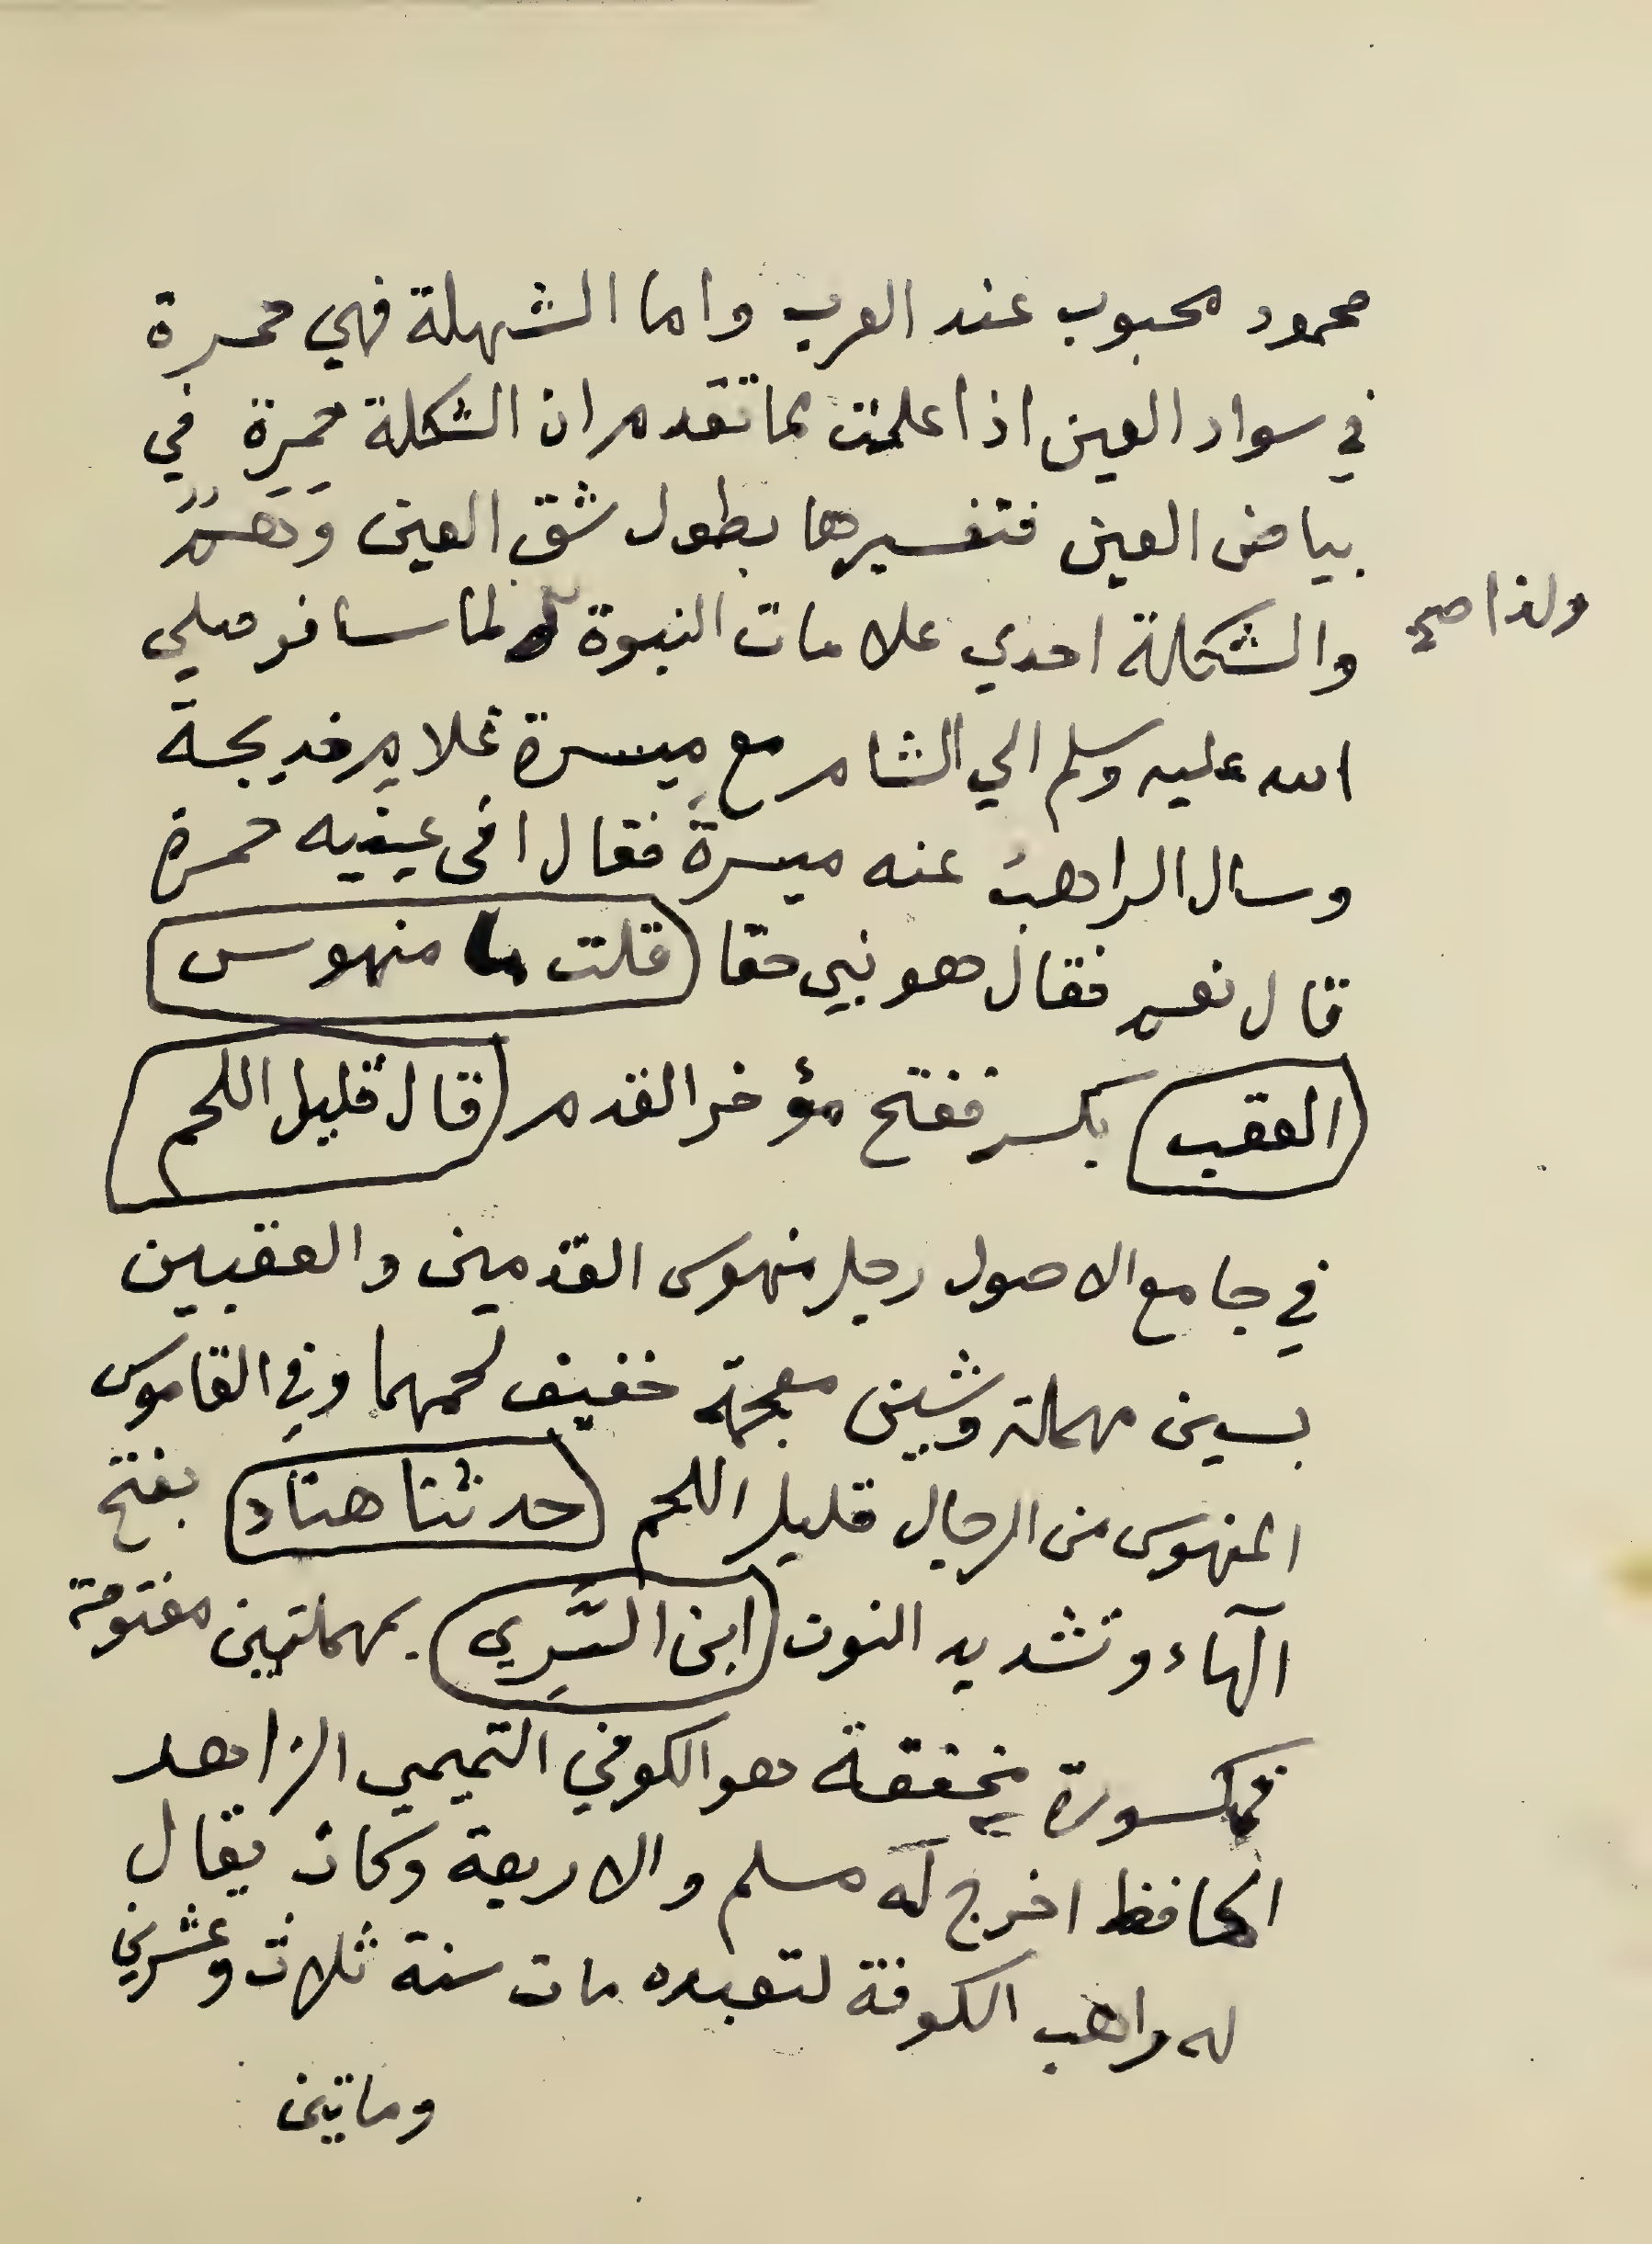 محمود محبوب عند العرب واما الشهلة فهي حمرة
في سواد العين اذا علمت بما تقدم ان الشكلة حمرة في
بياض العين فتفسيرها بطول شق العين وَهَمٌ
والشكلة احدي علامات النبوة لما سافر صلي
ولذا صح
الله عليه وسلم الي الشام مع ميسرة غلام خديجة
وسال الراهب عنه ميسرة فقال افى عينيه حمرة
قال نعم فقال هو نبي حقا قلت ما منهوس
العقب بكسر ففتح مؤخر القدم قال قليل اللحم
في جامع الاصول رجل منهوس القدمين والعقبين
بسين مهملة وشين معجمة خفيف لحمهما وفي القاموس
المنهوس من الرجال قليل اللحم حدثنا هناد بفتح
الهاء وتشديد النون ابن السَّرِي بمهملتين مفتوحة
فمكسورة مخففة هو الكوفي التميمي الزاهد
الحافظ اخرج له مسلم والاربعة وكان يقال
له راهب الكوفة لتعبده مات سنة ثلاث وعشرين
وماتين